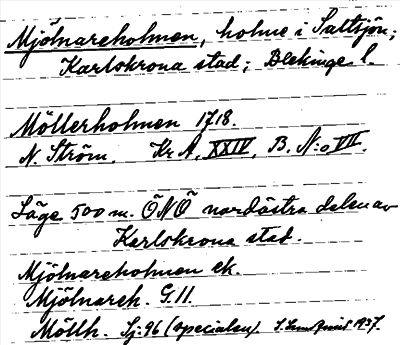 Mjölnareholmen, holme i Saltsjön;
Karlskrona stad; Blekinge l.
Möllerholmen 1718.
N. Ström. Kr. A. XXIV, B. N:o VII.
Läge 500 m. ÖNÖ nordöstra delen av
Karlskrona stad.
Mjölnareholmen ek.
Mjölnareh. G. 11.
Möllh. Sj: 96 (specialen). 1937.